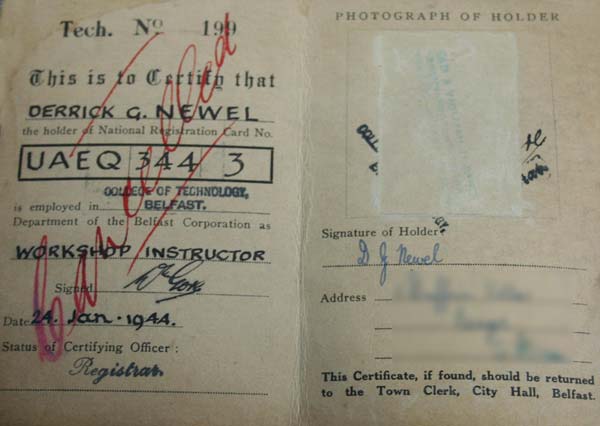 Tech. No 199
This is to Certify that
DERRICK G. NEWEL
the holder of National Registration Card No.
UAEQ 344 3
COLLEGE OF TECHNOLOGY,
is employed in BELFAST.
Department of the Belfast Corporation as
WORKSHOP INSTRUCTOR
Signed
Date 24. Jan. 1944.
Status of Certifying Officer :
Registrar.
Cancelled
PHOTOGRAPH OF HOLDER
Signature of Holder
D G Newel
Address
This Certificate, if found, should be returned
to the Town Clerk, City Hall, Belfast.